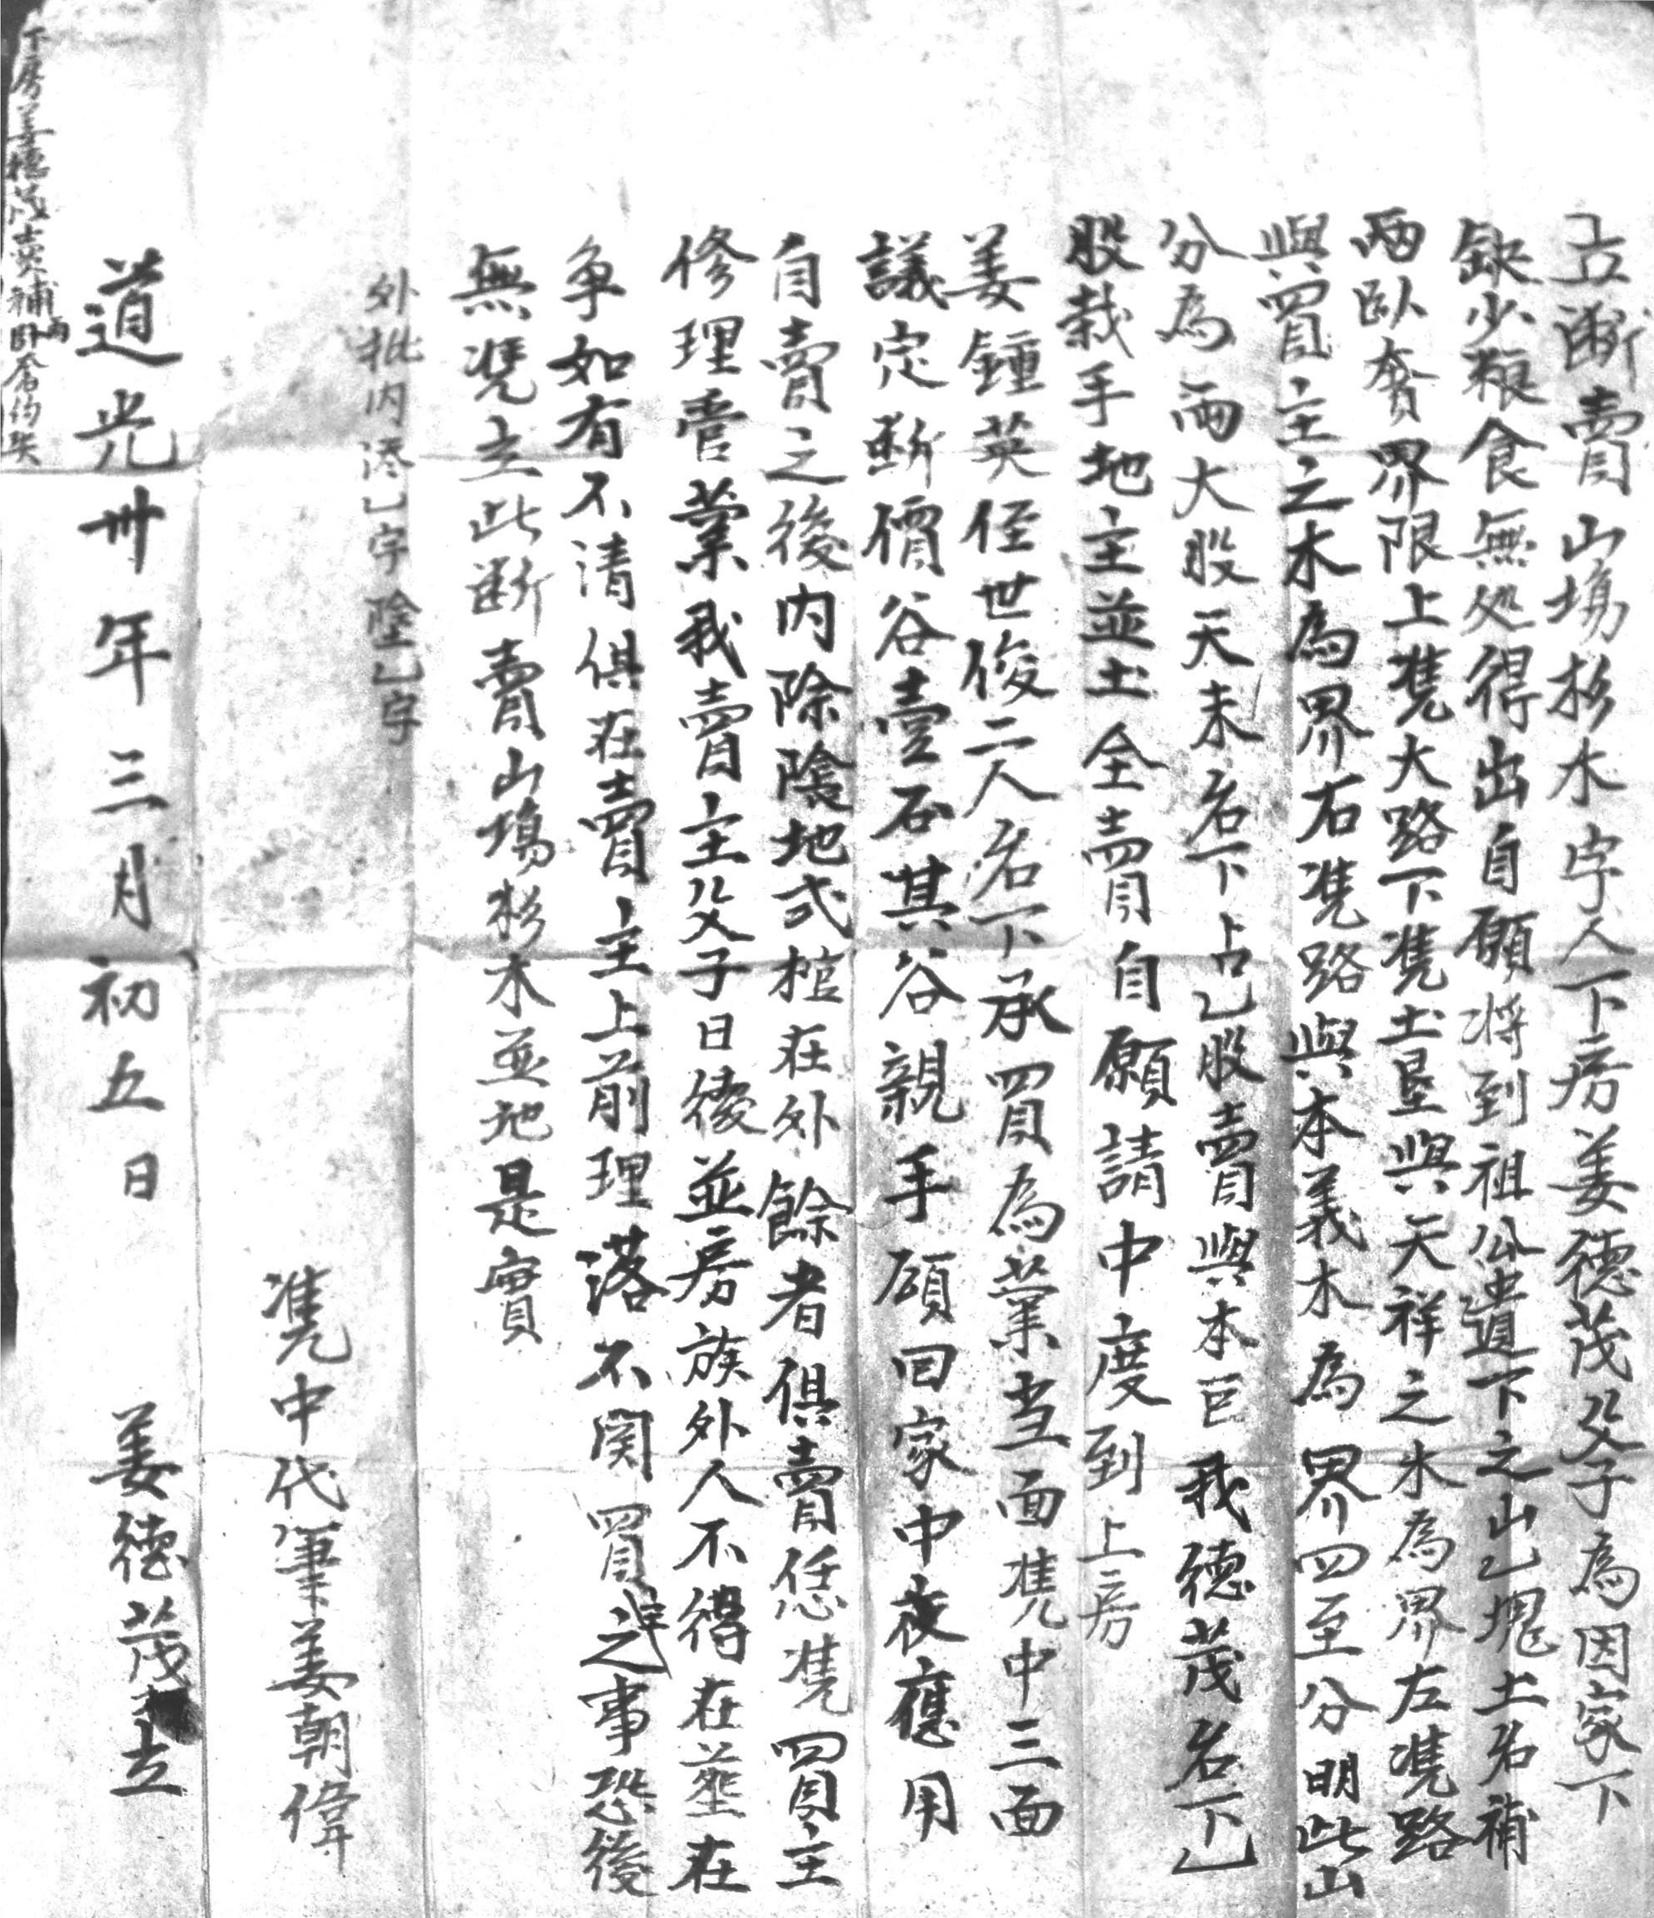 立斷賣山塲杉木字人下房姜德茂父子為因家下
缺少粮食無処得出自願将到祖公遺下之山乙塊土名補
兩卧奔界限上凴大路下凴土垦與天祥之木為界左凴路
與買主之木為界右凴路與本義木為界四至分明此山
分為兩大股天未名下占乙股賣與本巨我德茂名下乙
股栽手地主並土全賣自願請中度到上房
姜鍾英侄世俊二人名下承買為業当面凴中三面
議定斷價谷壹石其谷親手領回家中夜應用
自賣之後内除陰地弍棺在外餘者俱賣恁凴買主
修理管業我賣主父子日後並房族外人不得在塟在
争如有不清俱在賣主上前理落不関買主之事恐後
無凴立此斷賣山塲杉木並地是實
外批内添乙字除乙字
凴中代筆姜朝偉
道光卅年三月初五日 姜德茂立
下房姜德茂賣補兩卧奔約契